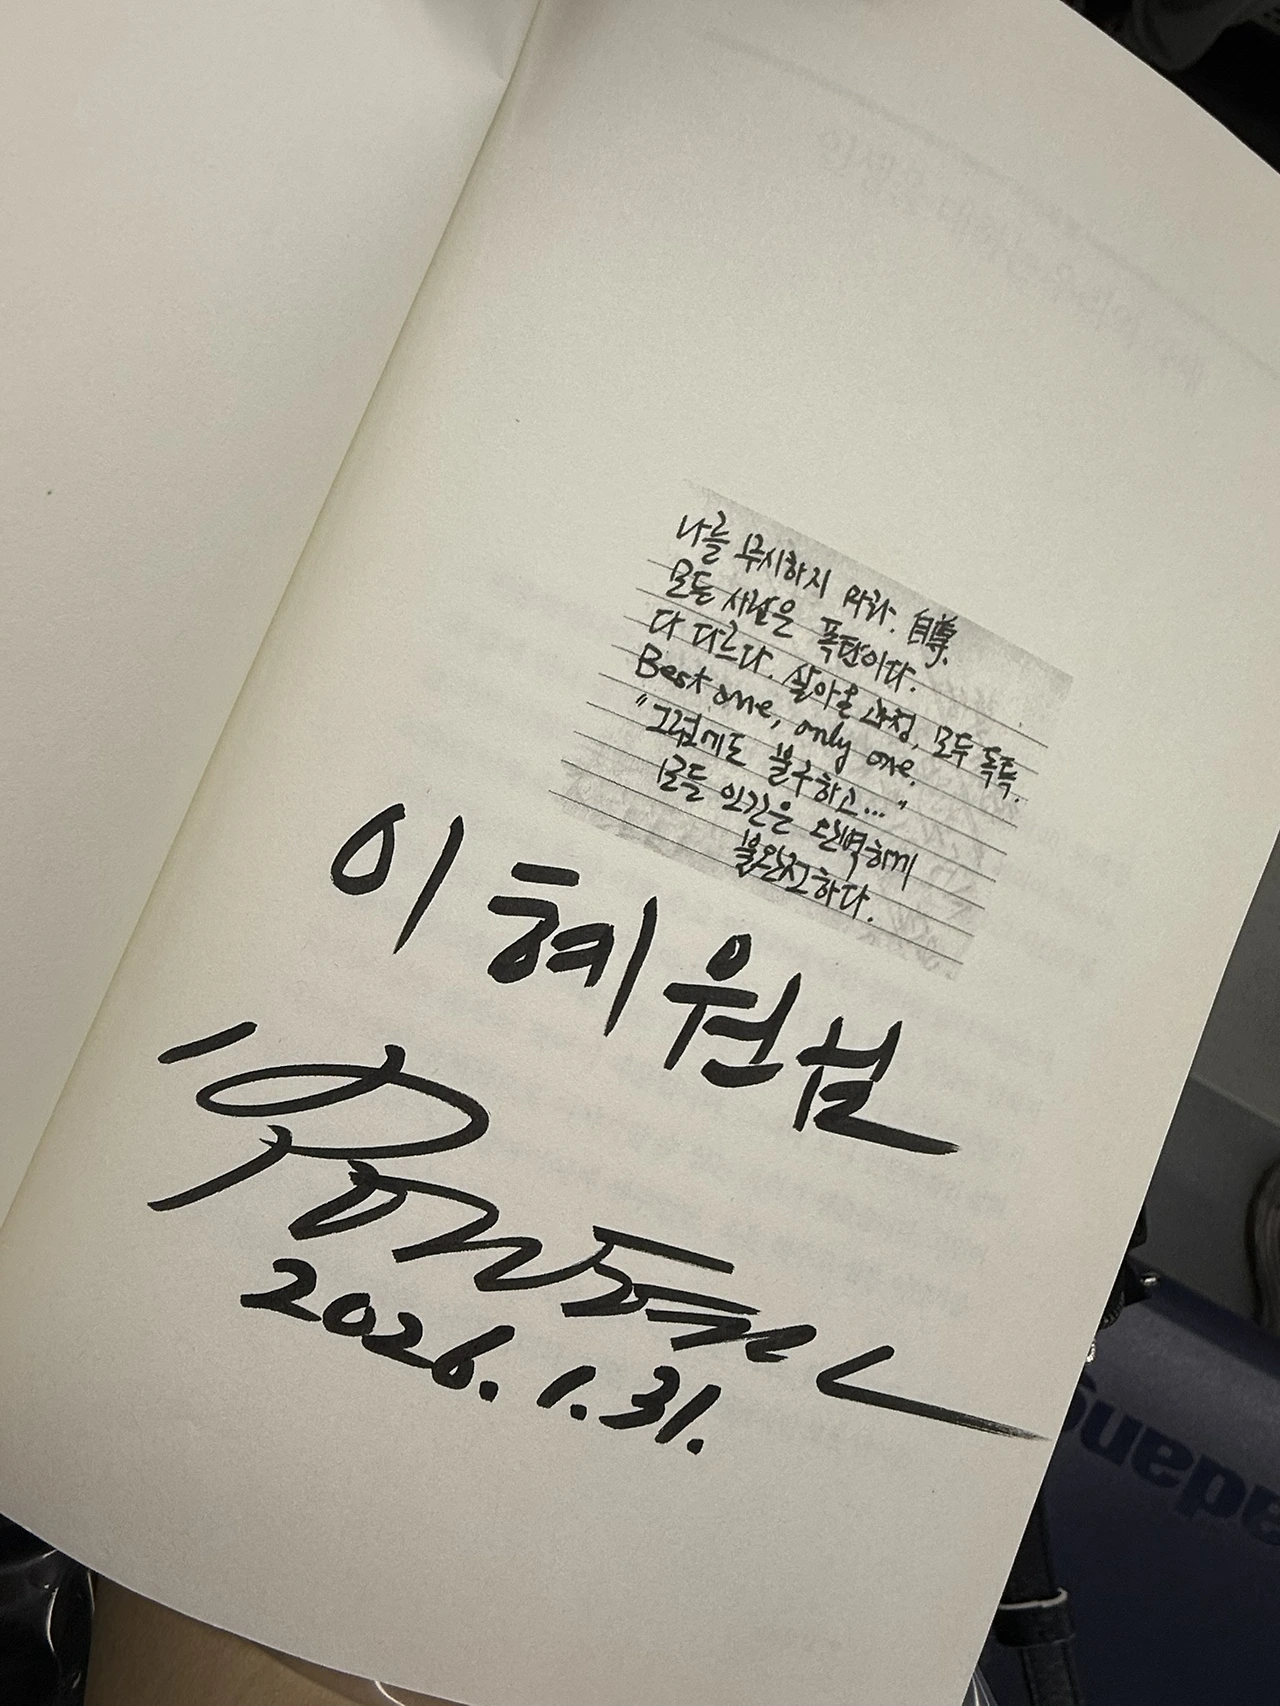 나를 무시하지 마라. 自尊.
모든 사람은 폭탄이다.
다 다르다. 살아온 과정, 모두 독특.
Best one, only one.
"그럼에도 불구하고..."
모든 인간은 완벽하게
불완전하다.
이혜원님
2026. 1. 31.